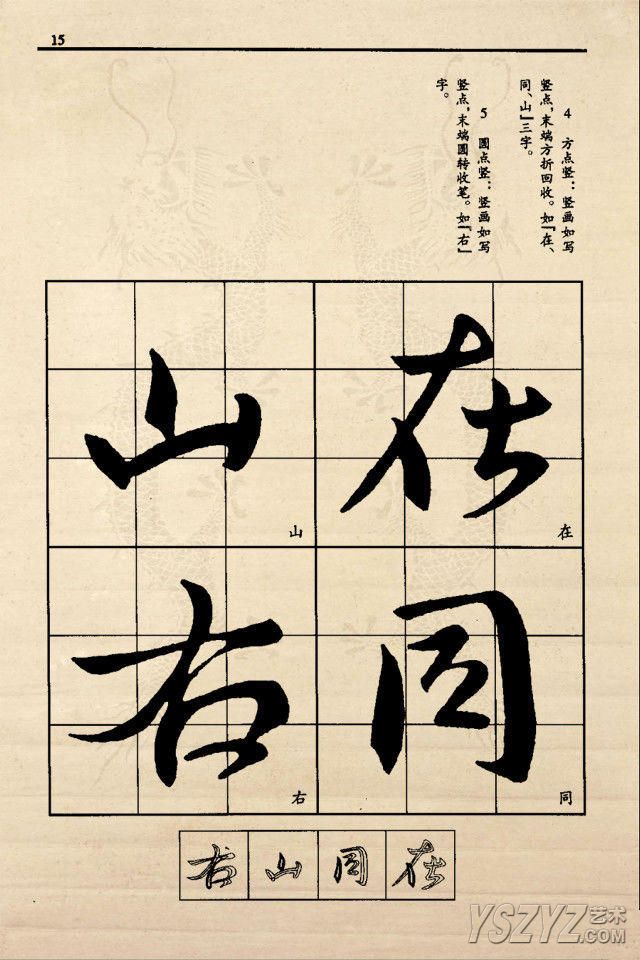 15
4 方点竖：竖画如写
竖点，末端方折回收。如『在、
同、山』三字。
5 圆点竖：竖画如写
竖点，末端圆转收笔。如『右』
字。
在
在
同
同
山
山
右
右
右山同在
YSZYZ艺术
.COM